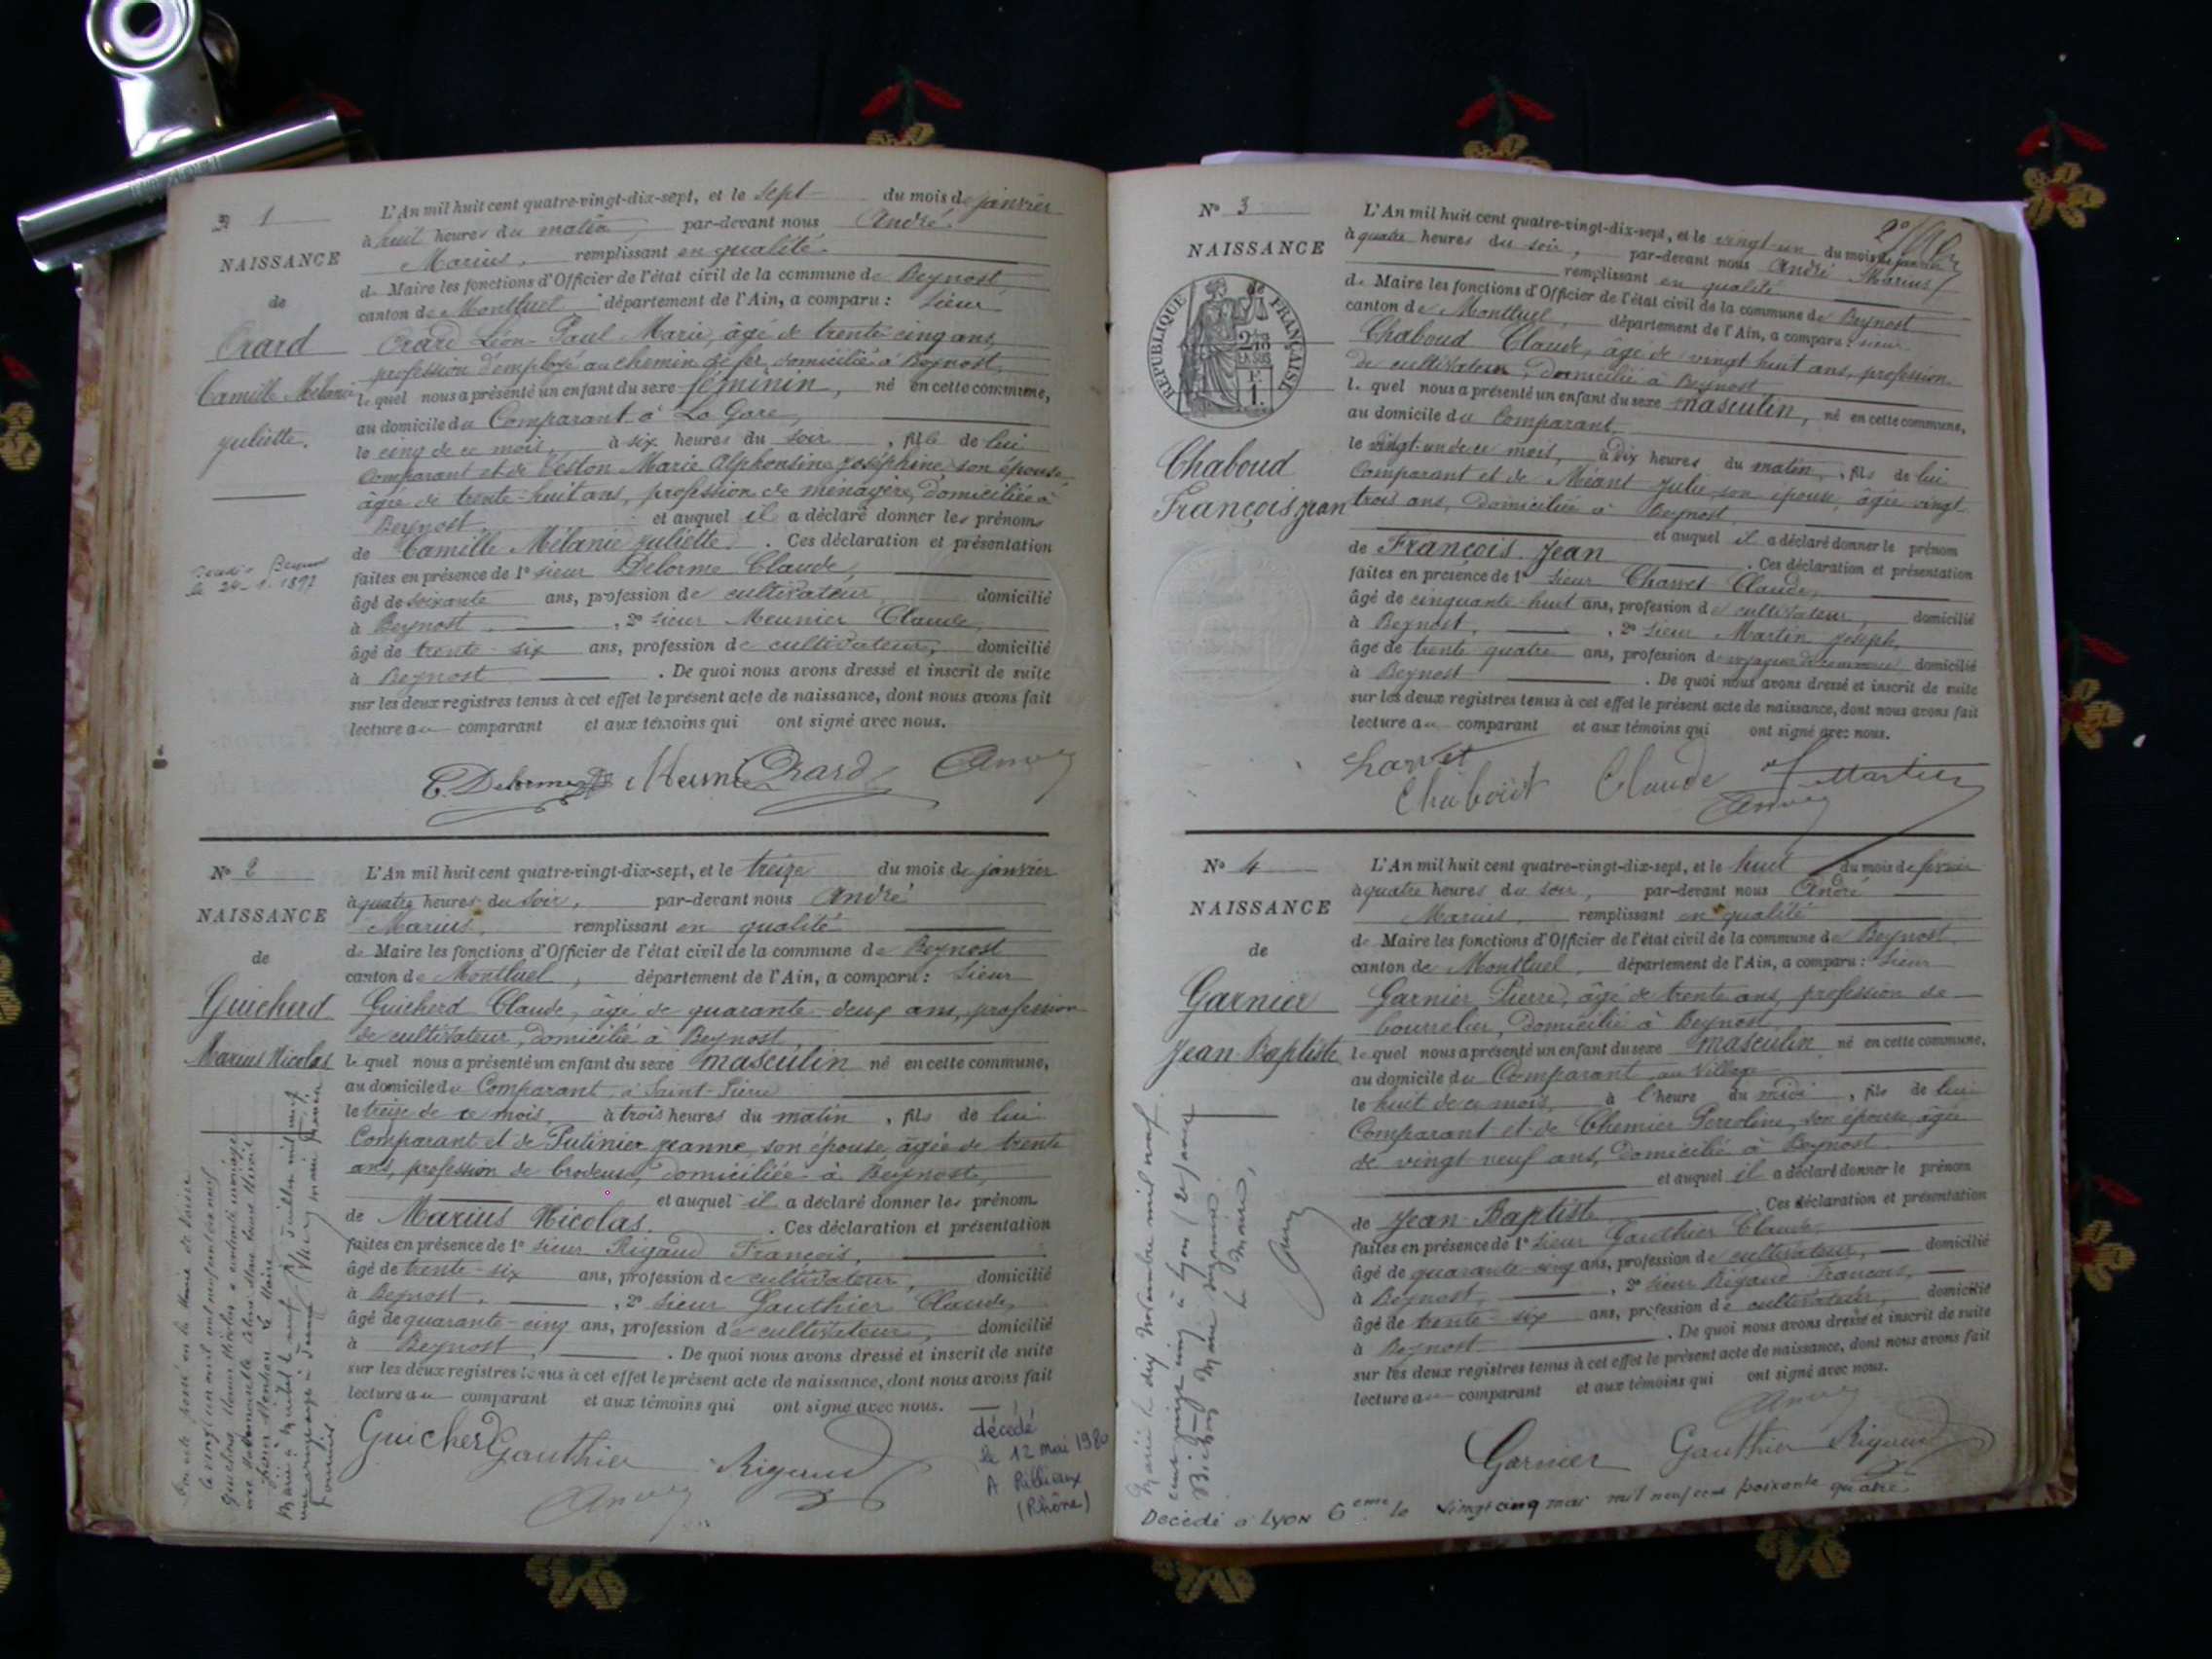 N° 1
NAISSANCE
de
Orard
Camille Mélanie
Juliette.
le 24-1-1897
L'An mil huit cent quatre-vingt-dix-sept, et le sept du mois de janvier
à huit heures du matin, par-devant nous André
Marius, remplissant en qualité
de Maire les fonctions d'Officier de l'état civil de la commune de Beynost
canton de Montluel département de l'Ain, a comparu : sieur
Orard Léon Paul Marie, âgé de trente cinq ans,
profession d'employé au chemin de fer domicilié à Beynost,
le quel nous a présenté un enfant du sexe féminin, né en cette commune,
au domicile du Comparant à La Gare,
le cinq de ce mois, à six heures du soir, fille de lui
Comparant et de Veston Marie Alphonsine Joséphine son épouse
âgée de trente-huit ans, profession de ménagère, domiciliée à
Beynost, et auquel il a déclaré donner les prénoms
de Camille Mélanie Juliette. Ces déclaration et présentation
faites en présence de 1° sieur Delorme Claude,
âgé de soixante ans, profession de cultivateur domicilié
à Beynost, 2° sieur Meunier Claude,
âgé de trente-six ans, profession de cultivateur, domicilié
à Beynost. De quoi nous avons dressé et inscrit de suite
sur les deux registres tenus à cet effet le présent acte de naissance, dont nous avons fait
lecture au comparant et aux témoins qui ont signé avec nous.
C. Delorme Meunier Orard
N° 2
NAISSANCE
de
Guicherd
Marius Nicolas
L'An mil huit cent quatre-vingt-dix-sept, et le treize du mois de janvier
à quatre heures du soir, par-devant nous André
Marius, remplissant en qualité
de Maire les fonctions d'Officier de l'état civil de la commune de Beynost
canton de Montluel, département de l'Ain, a comparu : Sieur
Guicherd Claude, âgé de quarante deux ans, profession
de cultivateur, domicilié à Beynost
le quel nous a présenté un enfant du sexe masculin né en cette commune,
au domicile du Comparant, à Saint-Pierre
le treize de ce mois, à trois heures du matin, fils de lui
Comparant et de Putinier Jeanne, son épouse âgée de trente
ans, profession de brodeuse, domiciliée à Beynost,
et auquel il a déclaré donner les prénom
de Marius Nicolas. Ces déclaration et présentation
faites en présence de 1° sieur Rigaud François,
âgé de trente-six ans, profession de cultivateur, domicilié
à Beynost, 2° sieur Gauthier Claude,
âgé de quarante-cinq ans, profession de cultivateur, domicilié
à Beynost. De quoi nous avons dressé et inscrit de suite
sur les deux registres tenus à cet effet le présent acte de naissance, dont nous avons fait
lecture au comparant et aux témoins qui ont signé avec nous.
Guicherd Gauthier Rigaud
décédé
le 12 mai 1980
A Rillieux
(Rhône)
N° 3
NAISSANCE
de
REPUBLIQUE FRANÇAISE
Chaboud
François Jean
L'An mil huit cent quatre-vingt-dix-sept, et le vingt-un du mois de janvier
à quatre heures du soir, par-devant nous André Marius
remplissant en qualité
de Maire les fonctions d'Officier de l'état civil de la commune de Beynost
canton de Montluel, département de l'Ain, a comparu : sieur
Chaboud Claude, âgé de vingt huit ans, profession
de cultivateur, domicilié à Beynost
le quel nous a présenté un enfant du sexe masculin, né en cette commune,
au domicile du Comparant
le vingt-un de ce mois, à dix heures du matin, fils de lui
Comparant et de Méant Julie son épouse, âgée vingt
trois ans, domiciliée à Beynost
et auquel il a déclaré donner le prénom
de François Jean. Ces déclaration et présentation
faites en présence de 1° sieur Charvet Claude,
âgé de cinquante-huit ans, profession de cultivateur, domicilié
à Beynost, 2° sieur Martin Joseph,
âgé de trente quatre ans, profession de voyageur de commerce domicilié
à Beynost. De quoi nous avons dressé et inscrit de suite
sur les deux registres tenus à cet effet le présent acte de naissance, dont nous avons fait
lecture au comparant et aux témoins qui ont signé avec nous.
Charvet
Claude Martin
N° 4
NAISSANCE
de
Garnier
Jean Baptiste
L'An mil huit cent quatre-vingt-dix-sept, et le huit du mois de février
à quatre heures du soir, par-devant nous André
Marius, remplissant en qualité
de Maire les fonctions d'Officier de l'état civil de la commune de Beynost,
canton de Montluel, département de l'Ain, a comparu : sieur
Garnier Pierre, âgé de trente ans, profession de
bourrelier, domicilié à Beynost
le quel nous a présenté un enfant du sexe masculin né en cette commune,
au domicile du Comparant au Village
le huit de ce mois, à l'heure du midi, fils de lui
Comparant et de Chemier son épouse âgée
de vingt neuf ans, domicilié à Beynost
et auquel il a déclaré donner le prénom
de Jean-Baptiste. Ces déclaration et présentation
faites en présence de 1° sieur Gauthier Claude,
âgé de quarante-cinq ans, profession de cultivateur, domicilié
à Beynost, 2° sieur Rigaud François,
âgé de trente-six ans, profession de cultivateur, domicilié
à Beynost. De quoi nous avons dressé et inscrit de suite
sur les deux registres tenus à cet effet le présent acte de naissance, dont nous avons fait
lecture au comparant et aux témoins qui ont signé avec nous.
Garnier Gauthier Rigaud
Décédé à Lyon 6eme le vingt cinq mai mil neuf cent soixante quatre